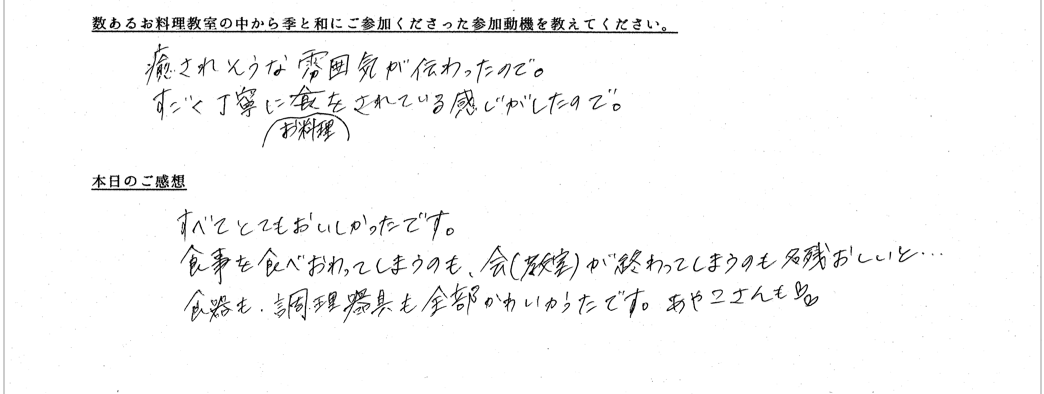 数あるお料理教室の中から季と和にご参加くださった参加動機を教えてください。
癒されそうな雰囲気が伝わったので。
すごく丁寧にお料理をされている感じがしたので。
本日のご感想
すべてとてもおいしかったです。
食事を食べおわってしまうのも、会(教室)が終わってしまうのも名残おしいと…
食器も、調理器具も全部かわいかったです。あやこさんも♡♡